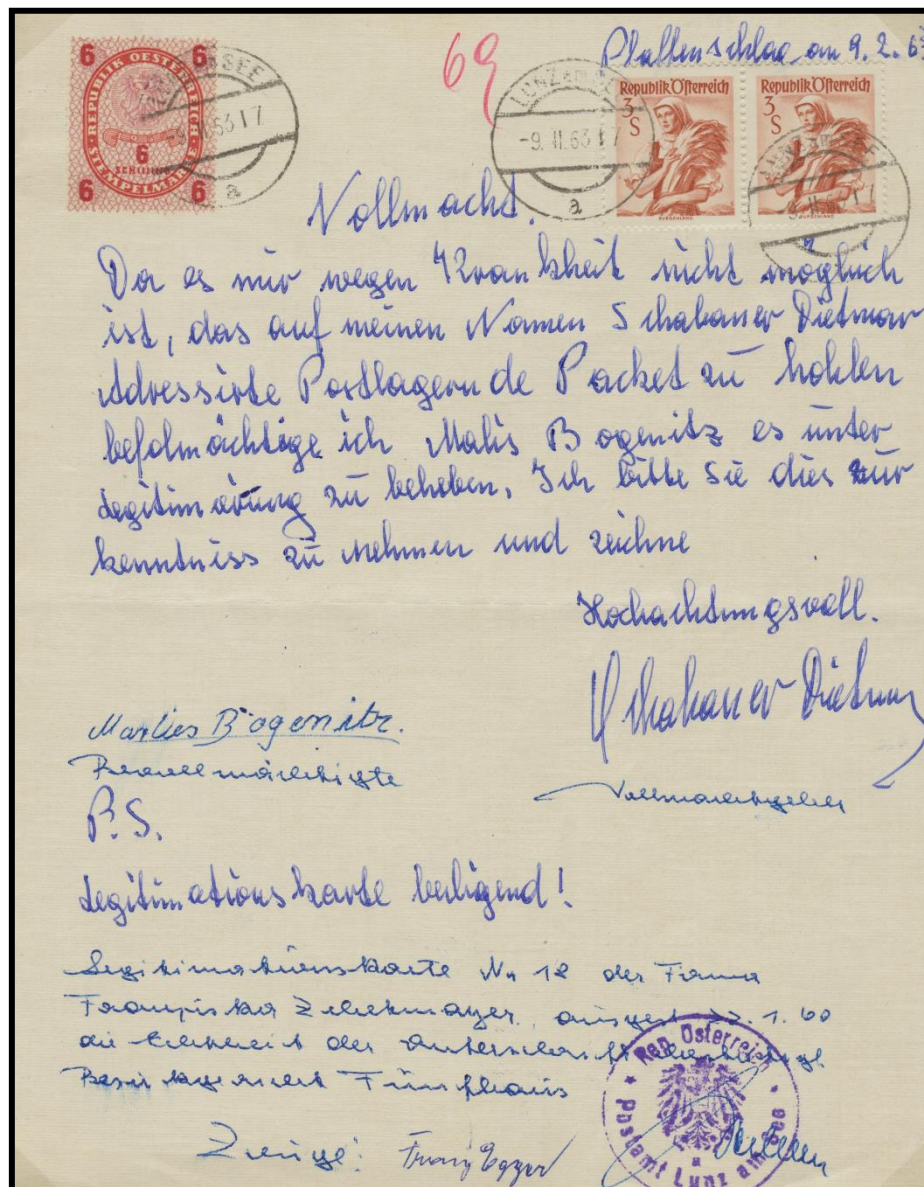 6 6
REPUBLIK OESTERREICH
6
SCHILLING
STEMPELMARKE
6 6
SEE
-9.II.63 17
a
69
LUNZ am SEE
-9.II.63 17
a
Plaffenschlag am 9.2.63
Republik Österreich
3
S
BURGENLAND
Republik Österreich
3
S
BURGENLAND
LUNZ am SEE
-9.II.63 17
Vollmacht.
Da es mir wegen Krankheit nicht möglich
ist, das auf meinen Namen Schabauer Dietmar
Adressirte Postlagernde Packet zu hohlen
befolmächtige ich Malis Bogenitz es unter
Legitimirung zu beheben. Ich bitte Sie dies zur
kenntniss zu nehmen und zeichne
Hochachtungsvoll.
Schabauer Dietmar
Marlies Bogenitz.
Bevollmächtigte
Vollmachtgeber
P.S.
Legitimationskarte beiligend!
Legitimationskarte Nr 12 der Firma
Franziska ausgest. 1.60
die Echtheit der Unterschrift bestätigt
Bezirksgericht Fünfhaus
Zeuge: Franz Egger
Rep. Österreich
Postamt Lunz am See
a